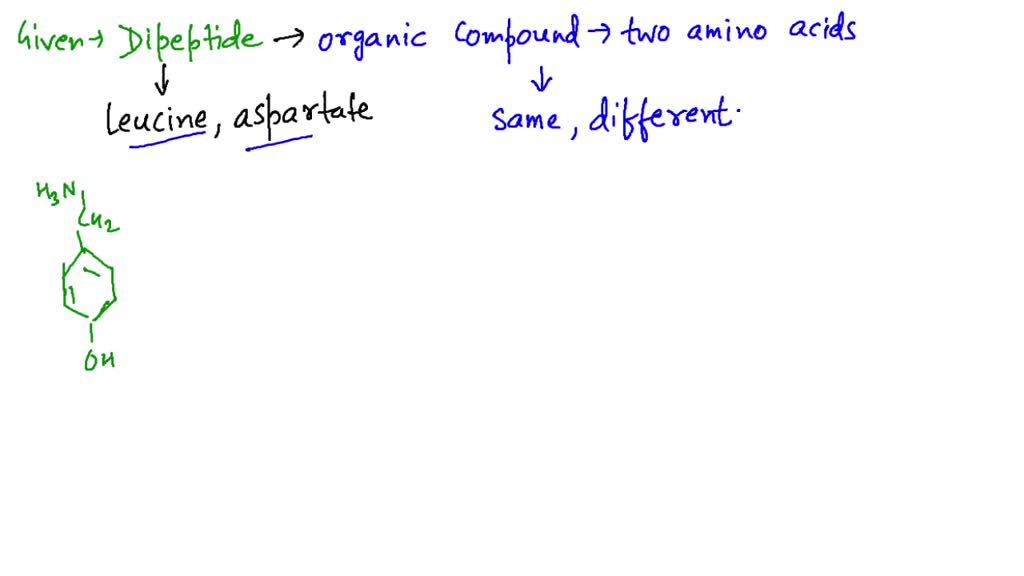 Given → Dipeptide → organic compound → two amino acids
↓ ↓
Leucine, aspartate same, different.
H3N
CH2
OH